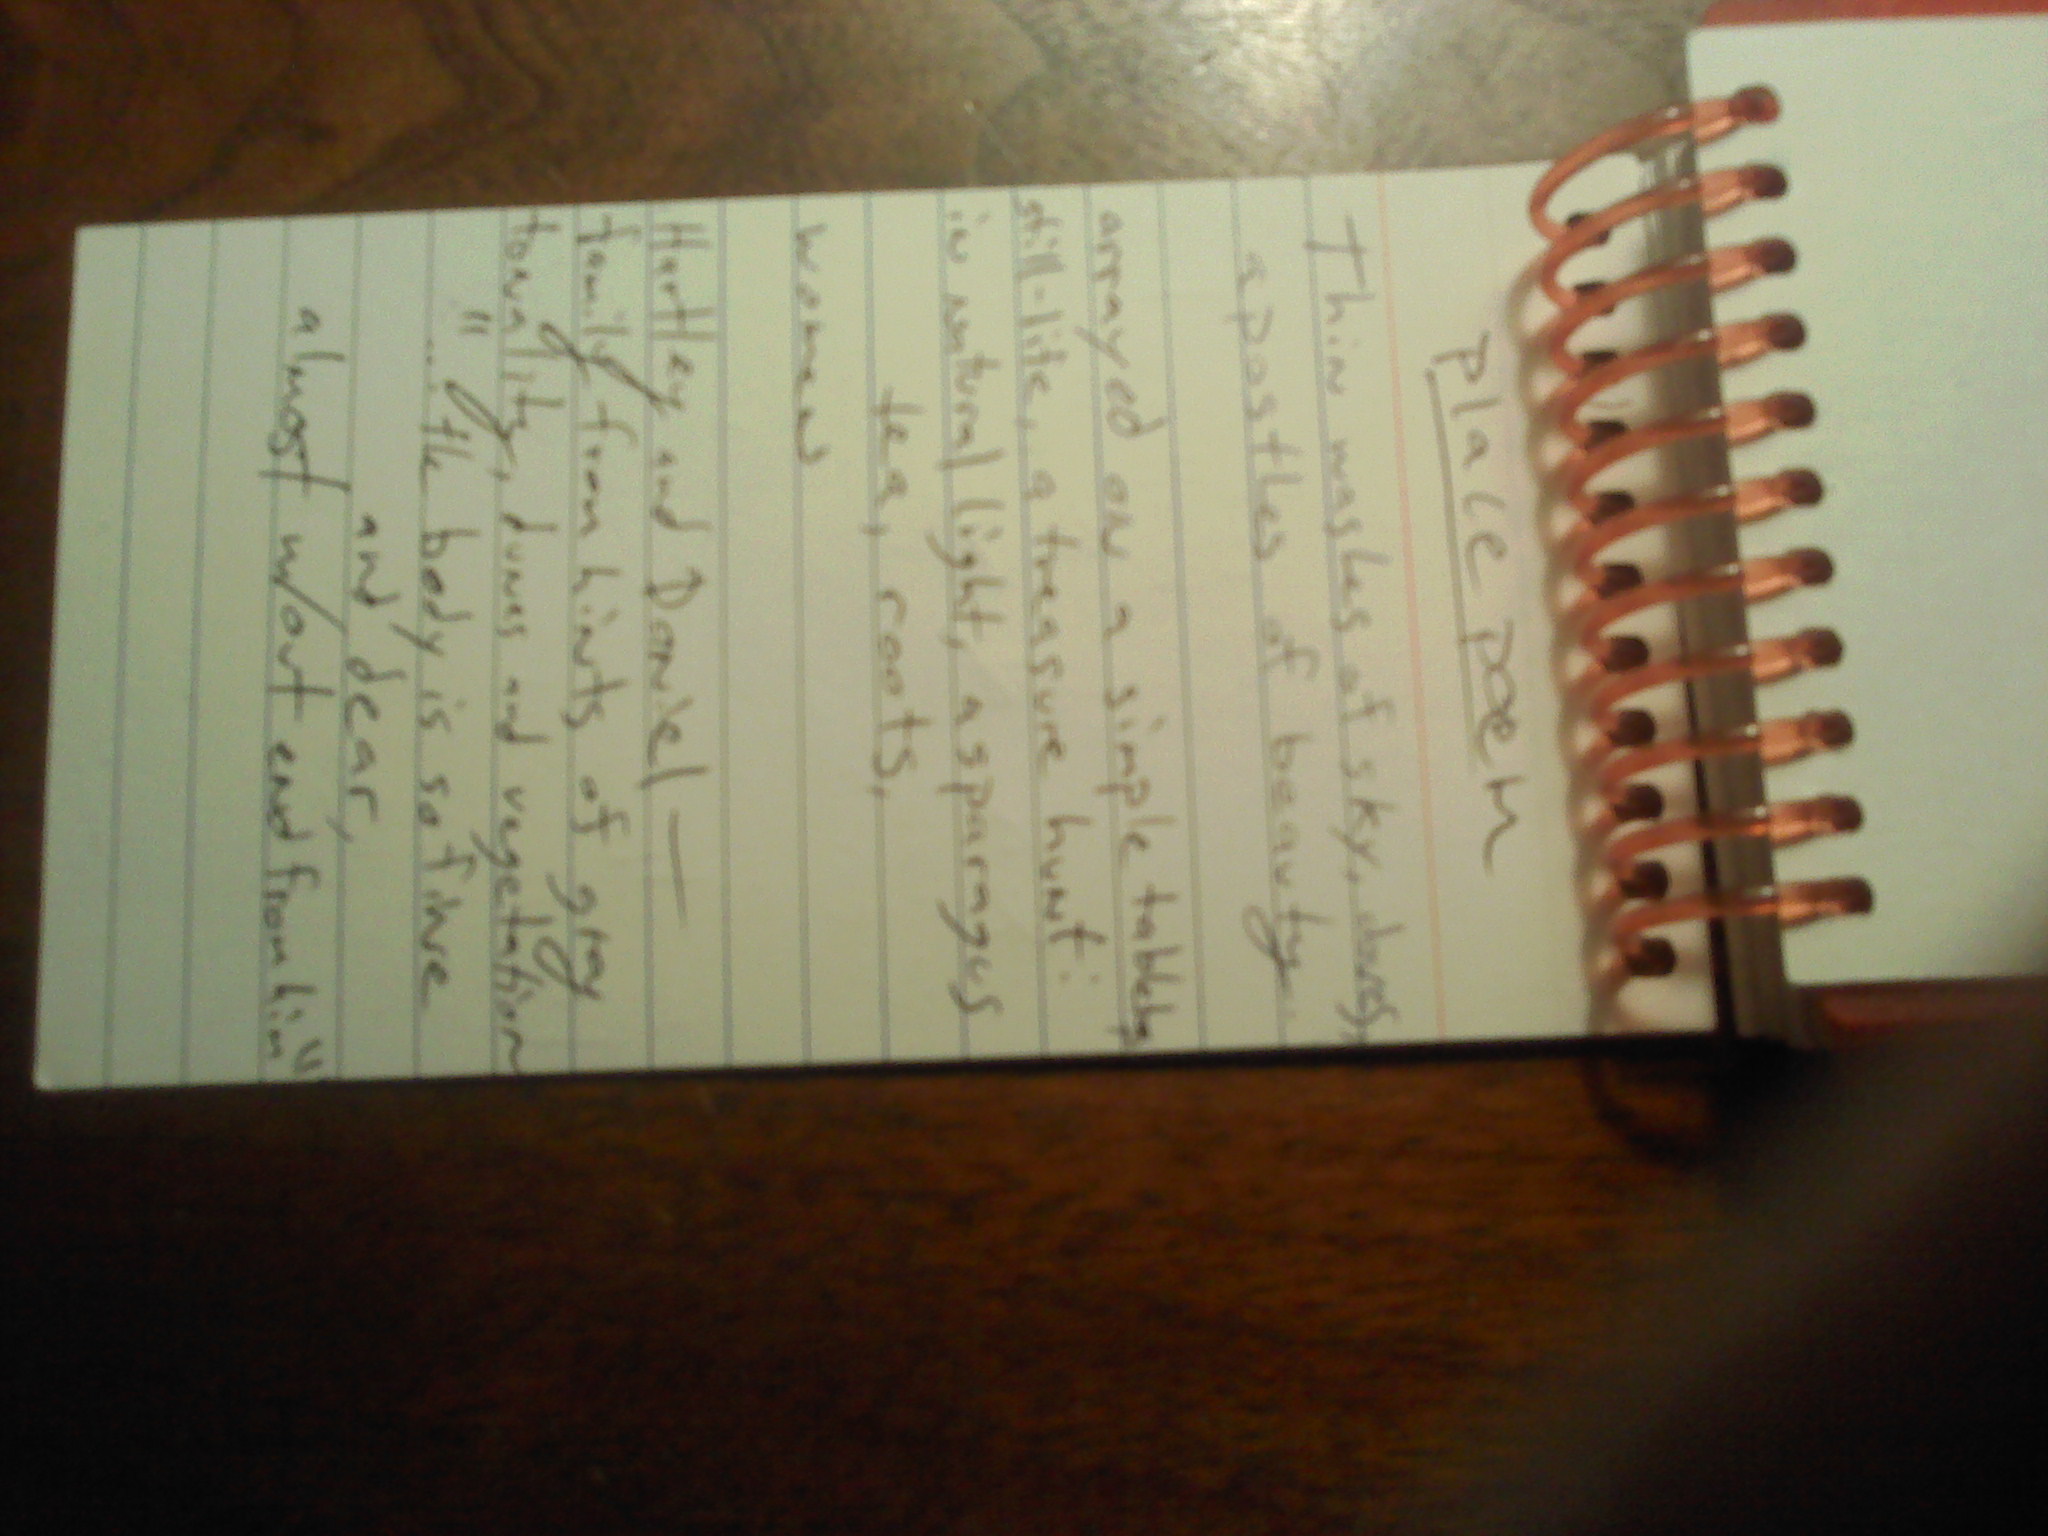 place poem
Thin washes of sky, dunes,
apostles of beauty
arrayed on a simple table,
still-life, a treasure hunt:
in natural light, asparagus
tea, roots,
women
Hartley and Daniel —
family from hints of gray
tonality, dunes and vegetation
"...the body is so fine
and dear,
almost w/out end from him"